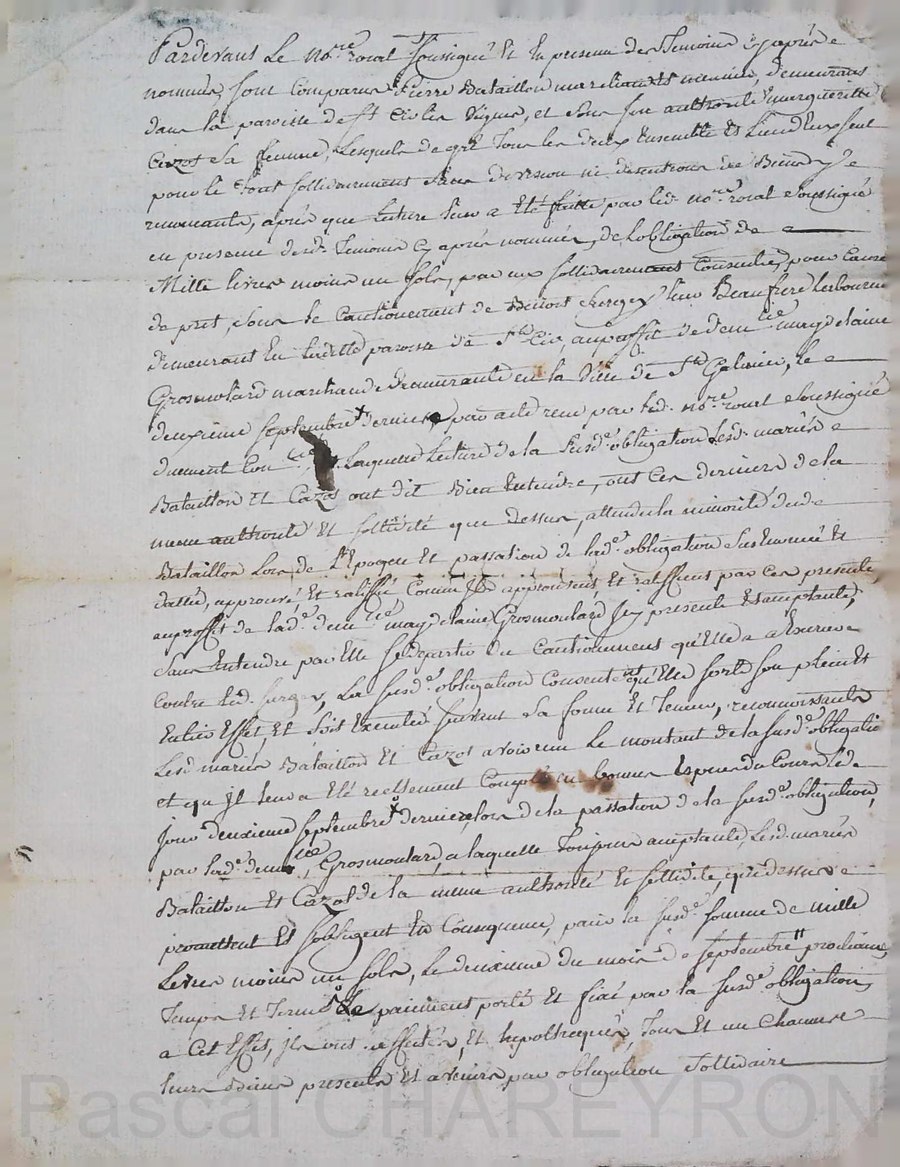 Pardevant Le no.re royal soussigné Et En presence des Temoins Cy après
nommés, sont comparus Pierre Bataillon marchand et menuisier, demeurants
dans la paroisse de st les vignes, et sous son authorité margueritte
Cazot sa femme, Lesquels de gré Tous les deux Ensemble Et L'un d'Eux seul
pour le Tout sollidairement sans division ni discution de Biens Je
renonçants, après que Lecture Leur a Eté faitte par led. no.re royal soussigné
en presence desd. Temoins Cy après nommés, de Lobligation de
Mille livres moins un sols, par eux sollidairement Consentie, pour Cause
de pret, sous le Cautionnement de Benoit Leur Beaufrère
demeurant En laditte paroisse de st , au proffit de dem.lle magdelaine
Grosmolard marchande demeurante en la Ville de st Galmier, le
deuxieme septembre dernier, par acte recu par led. no.re royal soussigné
duement Con.lé, Laquelle Lecture de la susd.e obligation Lesd. mariés
Bataillon Et Cazot ont dit Bien Entendre, ont Ces derniers de la
meme authorité Et sollidité que dessus, attendu la minorité dud.
Bataillon Lors de L'Epoque Et passation de lad.e obligation
dattée, approuvé Et ratiffié Comme Ils approuvent, Et ratiffient par Ces presentes
au proffit de lad.e dem.lle magdelaine Grosmoulard Icy presente Et acceptante,
sans Entendre par Elle se departir du Cautionnement qu'Elle a à Exercer
Contre led. , La susd.e obligation Consentent qu'Elle sorte son plein Et
Entier Effet, Et soit Executée suivant sa forme Et Teneur, reconnoissants
Lesd. mariés Bataillon Et Cazot avoir reçu le montant de la susd.e obligation
et qu'Il leur a Eté reellement Compté en bonnes Especes du Cours led.
jour deuxieme septembre dernier, lors de la passation de la susd.e obligation,
par lad.e dem.lle Grosmoulard, a laquelle Toujours acceptante, Lesd. mariés
Bataillon Et Cazot de la meme authorité Et sollidité, que dessus
promettent Et s'obligent En Consequence, paier la susd.e somme de mille
Livres moins un sols, Le deuxieme du mois de septembre prochain,
Temps et Terme de paiement porté Et fixé par la susd.e obligation,
a Cet Effet, Ils ont affectés, Et hipothequés, Tous Et un Chacuns
leurs Biens presents Et avenirs par obligation sollidaire
Pascal CHAREYRON